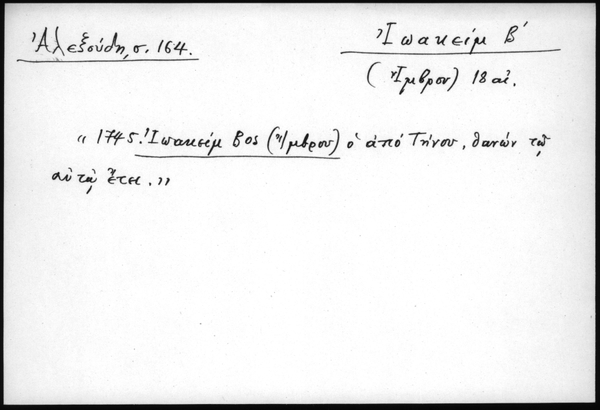 Ἀλεξούδη, σ. 164.
Ἰωακείμ Β΄
(Ἴμβρου) 18 αἰ.
« 1745. Ἰωακείμ Βος (Ἴμβρου) ὁ ἀπό Τήνου, θανών τῷ
αὐτῷ ἔτει. »